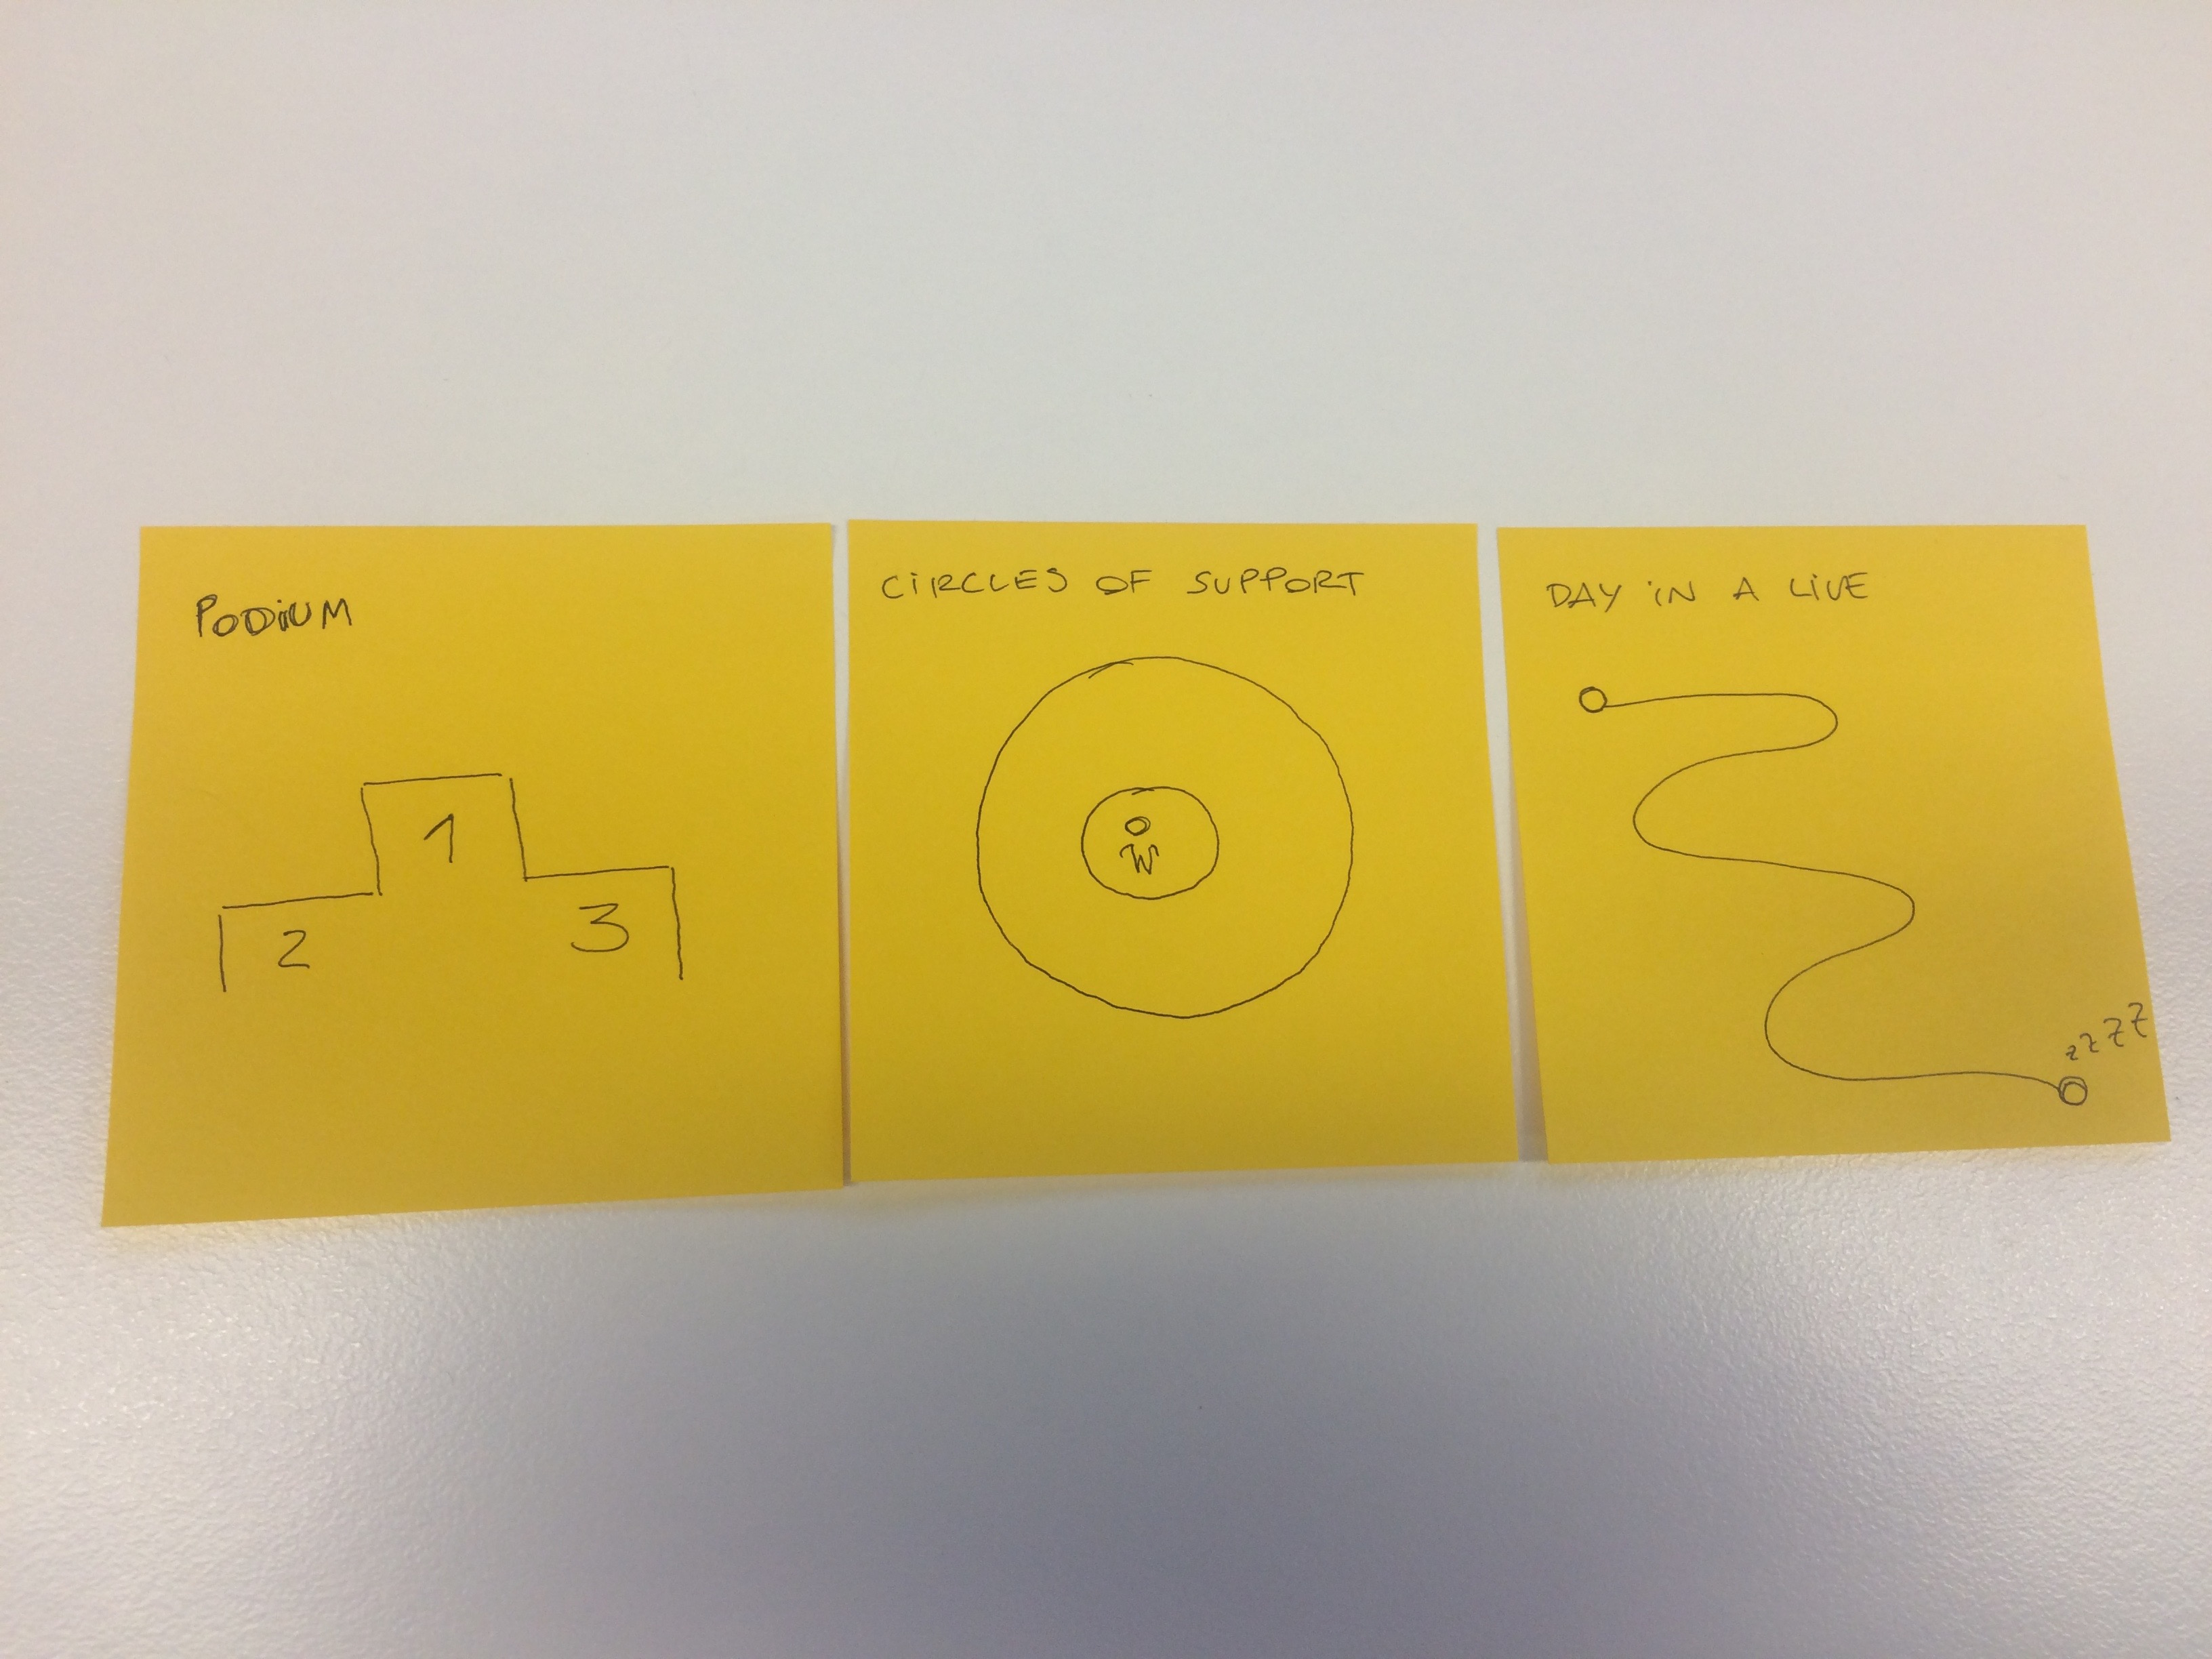 PODiUM
1
2
3
CiRCLES OF SUPPORT
DAY iN A LiVE
zzzz